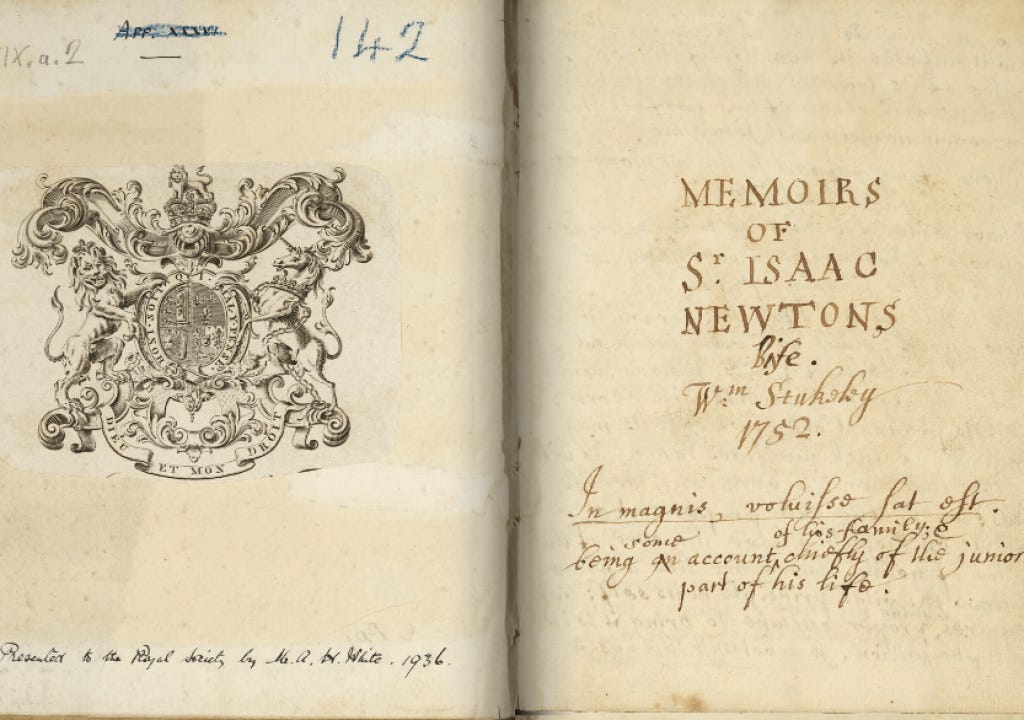 App. XXXVI
IX.a.2
142
HONI · SOIT · QUI · MAL · Y · PENSE
DIEU ET MON DROIT
Presented to the Royal Society by Mr. A. H. White. 1936.
MEMOIRS
OF
Sr. ISAAC
NEWTONS
life.
Wm. Stukeley
1752.
In magnis, voluisse sat est.
some of his family; &
being an account, chiefly of the junior
part of his life.